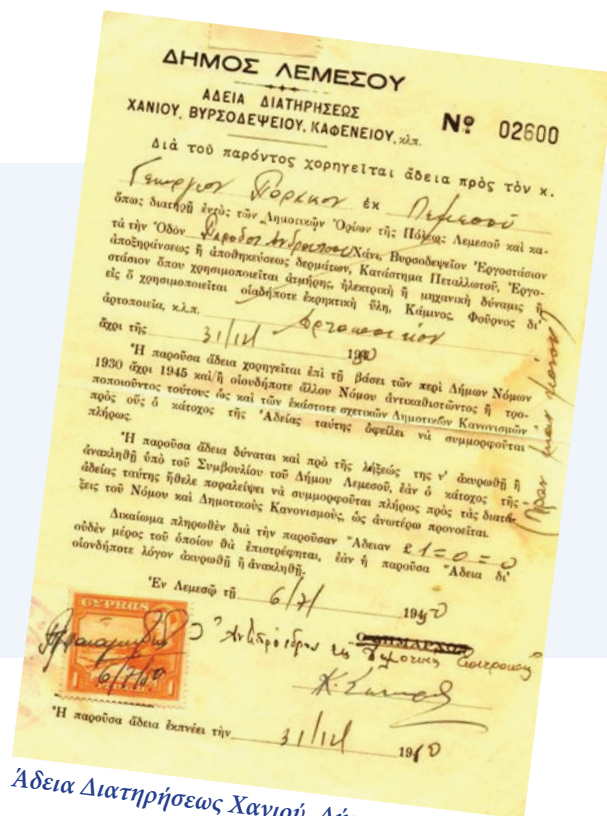 ΔΗΜΟΣ ΛΕΜΕΣΟΥ
ΑΔΕΙΑ ΔΙΑΤΗΡΗΣΕΩΣ
ΧΑΝΙΟΥ, ΒΥΡΣΟΔΕΨΕΙΟΥ, ΚΑΦΕΝΕΙΟΥ, κλπ.
Νº 02600
Διὰ τοῦ παρόντος χορηγεῖται ἄδεια πρὸς τὸν κ.
Γεώργιον ἐκ Λεμεσοῦ
ὅπως διατηρῇ ἐντὸς τῶν Δημοτικῶν Ὁρίων τῆς Πόλεως Λεμεσοῦ καὶ κα-
τὰ τὴν Ὁδὸν Χάνι, Βυρσοδεψεῖον Ἐργοστάσιον
ἀποξηράνσεως ἢ ἀποθηκεύσεως δερμάτων, Κατάστημα Πεταλλωτοῦ, Ἐργο-
στάσιον ὅπου χρησιμοποιεῖται ἀτμήρης, ἠλεκτρικὴ ἢ μηχανικὴ δύναμις ἢ
εἰς ὃ χρησιμοποιεῖται οἱαδήποτε ἐκρηκτικὴ ὕλη, Κάμινος, Φοῦρνος δι'
ἀρτοποιεῖα, κ.λ.π. Ἀρτοποιεῖον
ἄχρι τῆς 31/12 19
Ἡ παροῦσα ἄδεια χορηγεῖται ἐπὶ τῇ βάσει τῶν περὶ Δήμων Νόμων
1930 ἄχρι 1945 καὶ/ἢ οἱουδήποτε ἄλλου Νόμου ἀντικαθιστῶντος ἢ τρο-
ποποιοῦντος τούτους ὡς καὶ τῶν ἑκάστοτε σχετικῶν Δημοτικῶν Κανονισμῶν
πρὸς οὓς ὁ κάτοχος τῆς Ἀδείας ταύτης ὀφείλει νὰ συμμορφοῦται
πλήρως.
Ἡ παροῦσα ἄδεια δύναται καὶ πρὸ τῆς λήξεώς της ν' ἀκυρωθῇ ἢ
ἀνακληθῇ ὑπὸ τοῦ Συμβουλίου τοῦ Δήμου Λεμεσοῦ, ἐὰν ὁ κάτοχος τῆς
ἀδείας ταύτης ἤθελε παραλείψει νὰ συμμορφοῦται πλήρως πρὸς τὰς διατά-
ξεις τοῦ Νόμου καὶ Δημοτικοὺς Κανονισμούς, ὡς ἀνωτέρω προνοεῖται.
Δικαίωμα πληρωθὲν διὰ τὴν παροῦσαν Ἄδειαν £1=0=0
οὐδὲν μέρος τοῦ ὁποίου θὰ ἐπιστρέφηται, ἐὰν ἡ παροῦσα Ἄδεια δι'
οἱονδήποτε λόγον ἀκυρωθῇ ἢ ἀνακληθῇ.
Ἐν Λεμεσῷ τῇ 6/7/ 19
CYPRUS
Ο ΔΗΜΑΡΧΟΣ
Ἡ παροῦσα ἄδεια ἐκπνέει τὴν 31/12 19
Άδεια Διατηρήσεως Χανιού,